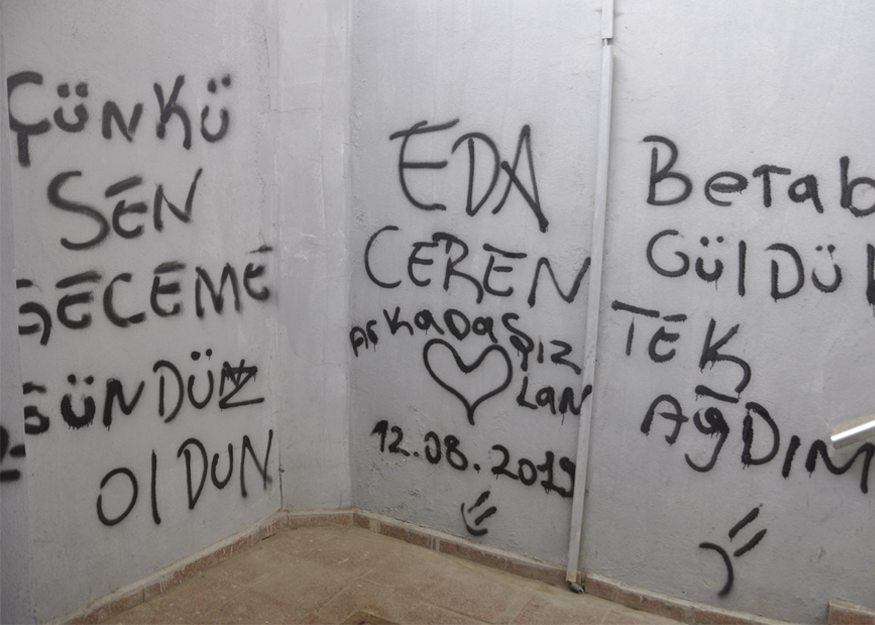 ÇÜNKÜ
SEN
GECEME
GÜNDÜZ
OlDUN
EDA
CEREN
ARKADAŞ
ŞIZ
LAN
12.08.2019
Berab
GülDÜ
TEK
AğDIM